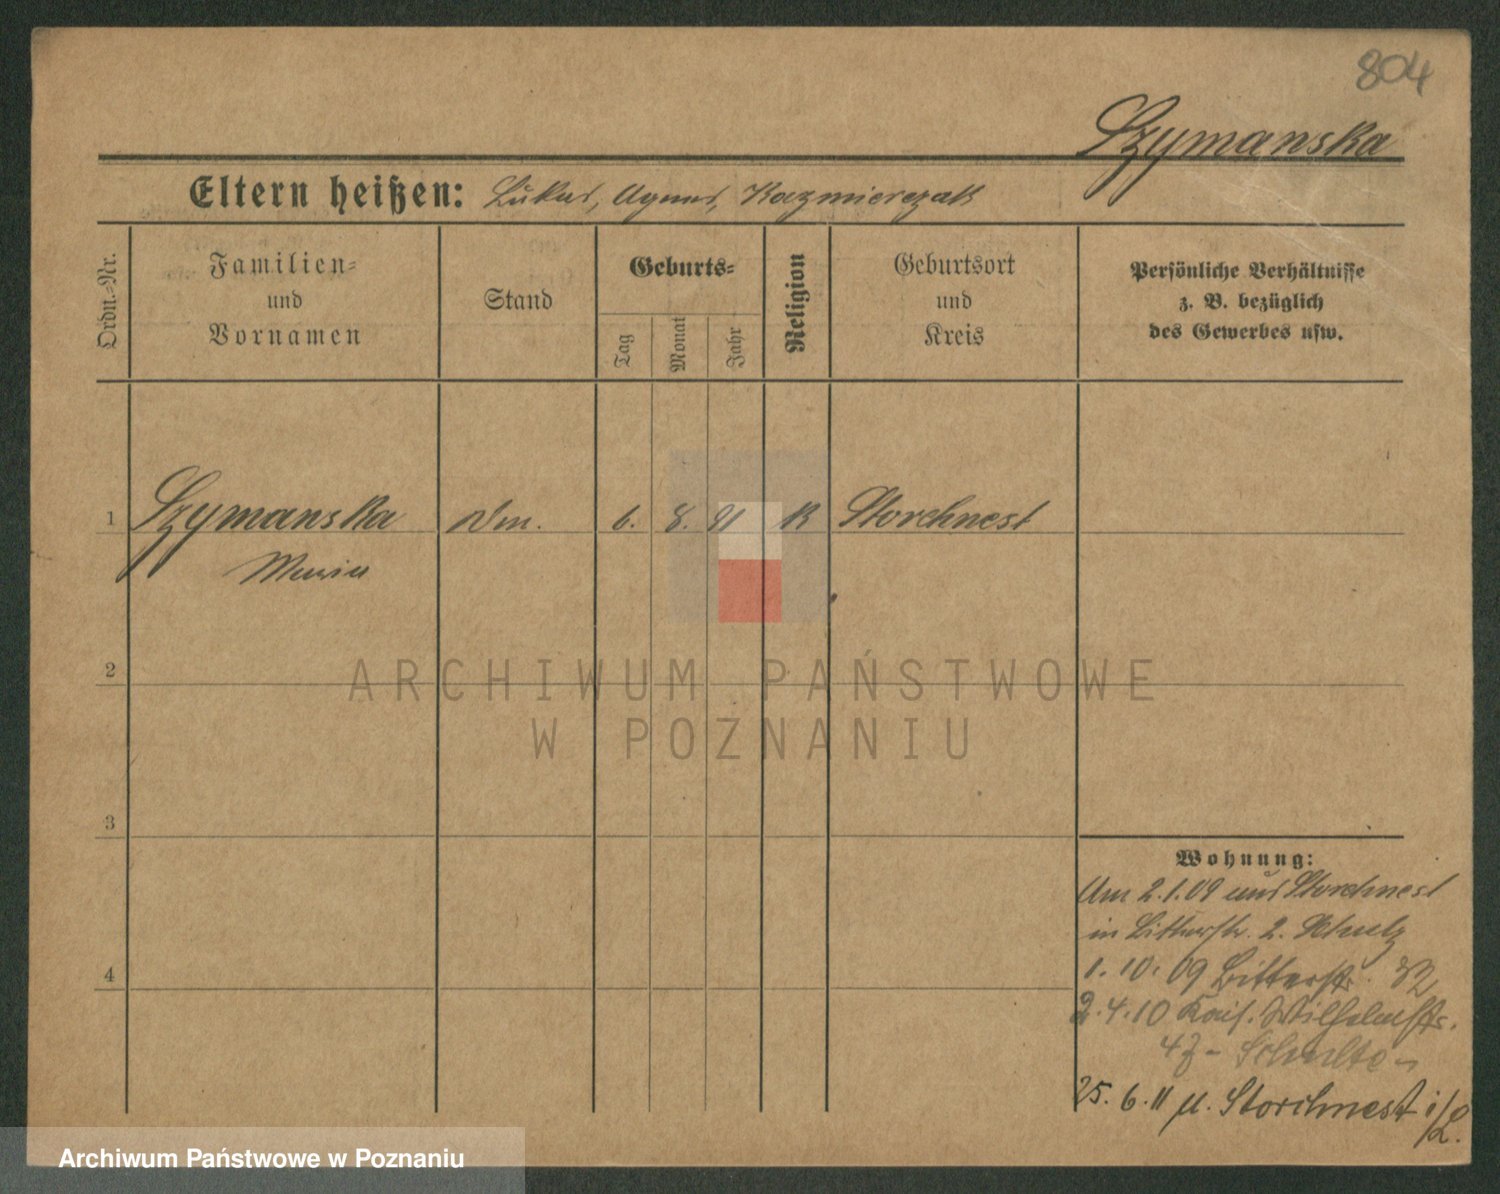 804
Szymanska
Eltern heißen: Lukas, Agnes, Kazmierczak
Ordn.-Nr.
Familien-
und
Vornamen
Stand
Geburts-
Tag
Monat
Jahr
Religion
Geburtsort
und
Kreis
Persönliche Verhältnisse
z. B. bezüglich
des Gewerbes usw.
1 Szymanska 6. 8. 91 K Storchnest
Maria
2
3
4
Wohnung:
Am 2.1.09 aus Storchnest
in 2. Schulz
1.10.09 Bitterstr. 32
2.4.10 Kais. Wilhelmstr.
- Schulte -
25.6.11 n. Storchnest i/L.
ARCHIWUM PAŃSTWOWE
W POZNANIU
Archiwum Państwowe w Poznaniu